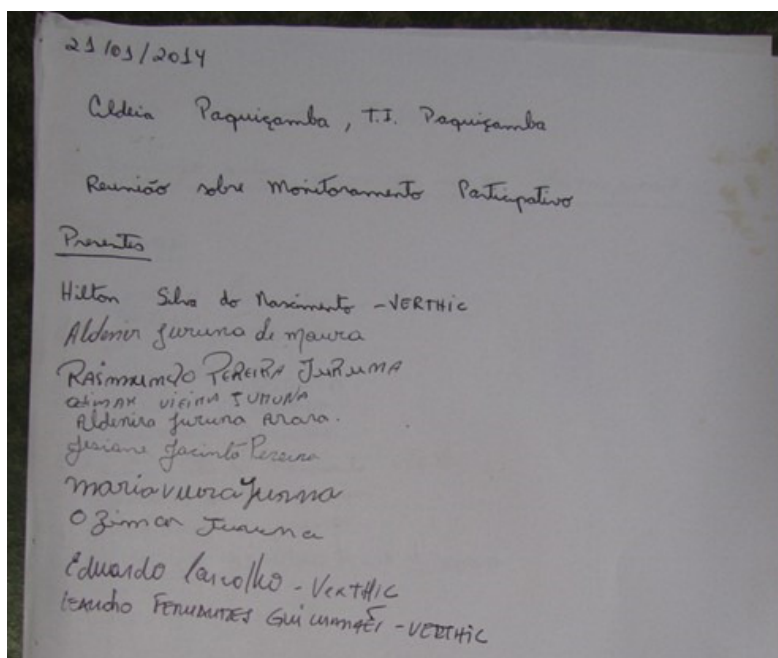 21/01/2014
Aldeia Paquiçamba, T.I. Paquiçamba
Reunião sobre Monitoramento Participativo
Presentes
Hilton Silva do Nascimento - VERTHIC
Aldenir Juruna de Moura
RAIMUNDO PEREIRA JURUNA
VIEIRA JURUNA
Aldenira Juruna Arara.
Josiane Jacinto Pereira
Maria Vieira Juruna
Ozimar Juruna
Eduardo Carvalho - VERTHIC
LEANDRO FERNANDES GUIMARÃES - VERTHIC